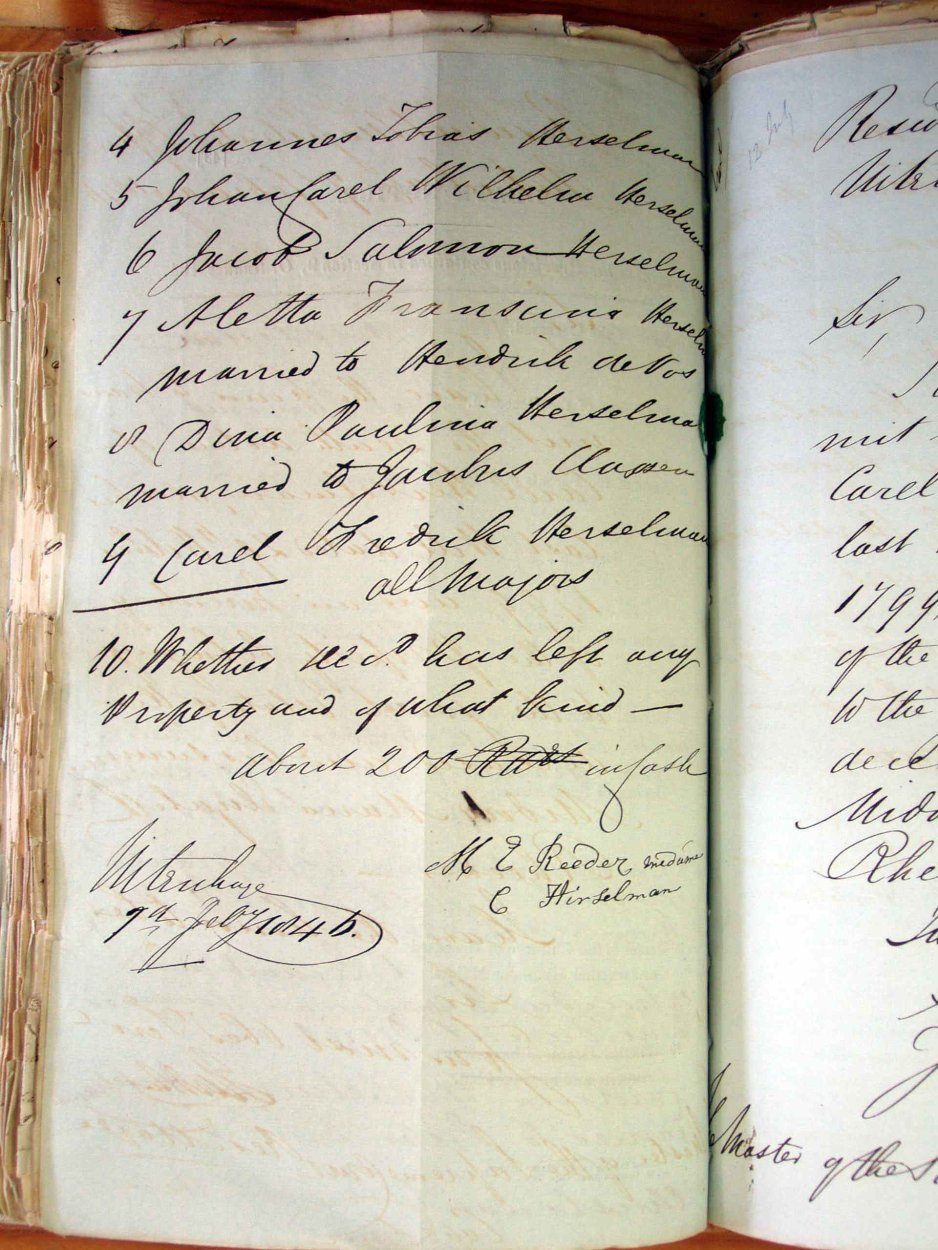 4 Johannes Tobias Herselman
5 Johan Carel Wilhelm Herselman
6 Jacob Salomon Herselman
7 Aletta Fransina Herselm
married to Hendrik de Vos
8 Dina Paulina Herselma
married to Jacobus Claasen
9 Carel Fredrik Herselman
all Majors
10. Whether decd. has left any
Property and of what kind —
about 200 in Cash
M E Reeder
C Hirselman
Uitenhage
9th Feby 1846.
12 July
Sir
mit
Carel
last
1799
of the
to the
Master of the S